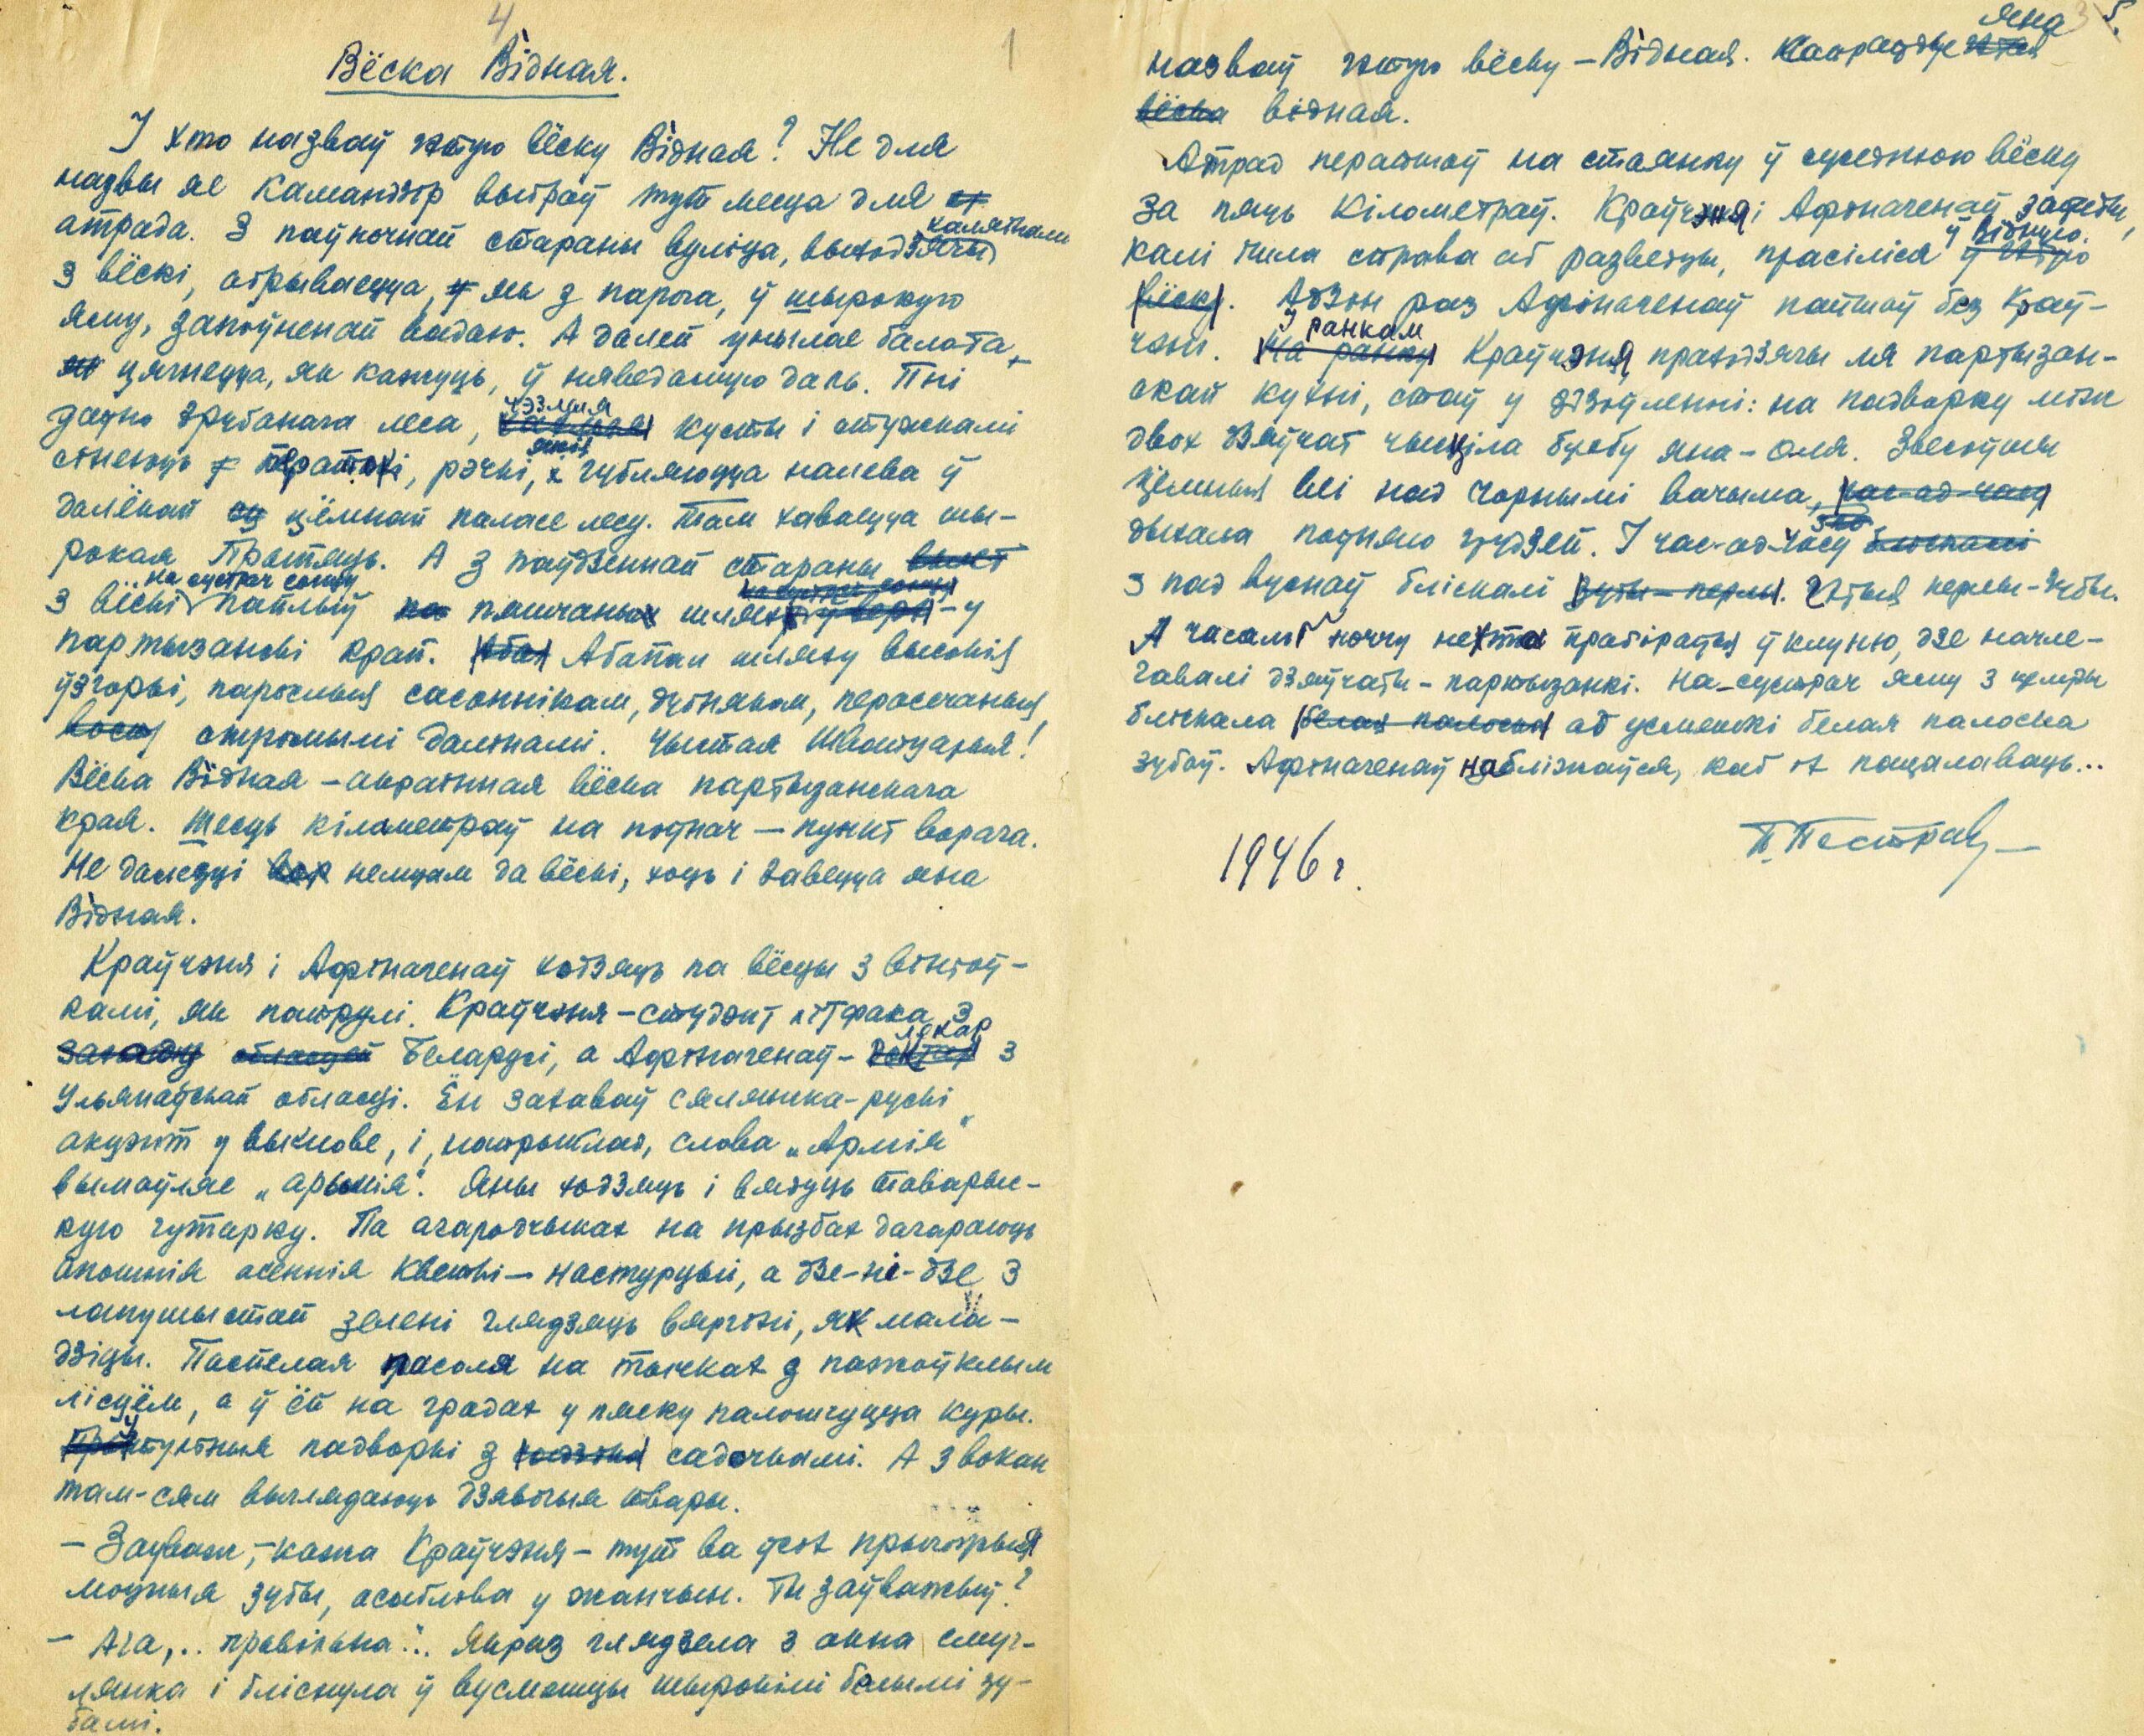 4
1
Вёска Відная.
І хто назваў гэтую вёску Відная? Не для
назвы яе камандзір выбраў тут месца для
атрада. З паўночнай стараны вуліца, выходзячы каляінамі
з вёскі, абрываецца, як з парога, ў шырокую
яму, запоўненай вадою. А далей унылае балота,
цягнецца, як кажуць, ў няведамую даль. Пні
даўно зрубанага леса, чэзлыя кусты і стужкамі
сінеюць пратокі, рэчкі, якія губляюцца налева ў
далёкай цёмнай паласе лесу. Там хаваецца шы-
рокая Прыпяць. А з паўдзённай стараны
з вёскі на сустрач сонцу паплыў пяшчаны шлях - у
партызанскі край. Абапал шляху высокія
ўзгоркі, парослыя сасоннікам, дубняком, перасечаныя
стромымі далінамі. Чыстая Швейцарыя!
Вёска Відная – акраінная вёска партызанскага
края. Шесць кіламетраў на поўнач – пункт ворага.
Не даляцці немцам да вёскі, хоць і завецца яна
Відная.
Краўчэня і Афіначенаў ходзяць па вёсцы з вінтоў-
камі, як патрулі. Краўчэня – студэнт літфака з
Беларусі, а Афіначенаў – лекар з
Ульянаўскай обласці. Ён захаваў сялянска-рускі
акцэнт у вымове, і, напрыклад, слова „Армія"
вымаўляе „арымія". Яны ходзяць і вядуць таварыс-
кую гутарку. Па агародчыках на прызбах дагараюць
апошнія асеннія кветкі – настурцыі, а дзе-не-дзе з
лапушыстай зелені глядзяць вяргіні, як мала-
дзіцы. Паспелая фасоля на тычках з пажоўклым
лісцём, а ў ёй на градах у пяску палошчуцца куры.
утульныя падворкі з садочкамі. А з вокан
там-сям выглядаюць дзявочыя твары.
– Заўваж, – кажа Краўчэня – тут ва ўсіх прыгожыя
моцныя зубы, асабліва у жанчын. Ты заўважыў?
– Ага,.. правільна... Якраз глядзела з акна смуг-
лянка і бліснула ў вусмешцы шырокімі белымі зу-
бамі.
5.
назваў гэтую вёску – Відная. Сапраўдзе яна
відная.
Атрад перайшоў на стаянку ў суседнюю вёску
за пяць кілометраў. Краўчэня і Афіначенаў заўсёды,
калі была справа аб разведцы, прасіліся ў Відную.
Адзін раз Афіначенаў пайшоў без Краў-
чэні. І ранкам Краўчэня, праходзячы ля партызан-
скай кухні, стаў у здзіўленні: на падворку між
двох дзяўчат чысціла бульбу яна – Оля. Звесіўшы
цёмныя веі над чорнымі вачыма,
дыхала поўняю грудзей. І час-ад-часу
з пад вуснаў бліскалі. Гэтыя перлы-зубы.
А часамі ноччу нехта прабіраўся ў клуню, дзе начле-
гавалі дзяўчаты – партызанкі. На-сустрач яму з цемры
бліскала ад усмешкі белая палоска
зубоў. Афіначенаў набліжаўся, каб іх пацалаваць...
П. Пестрак
1946 г.